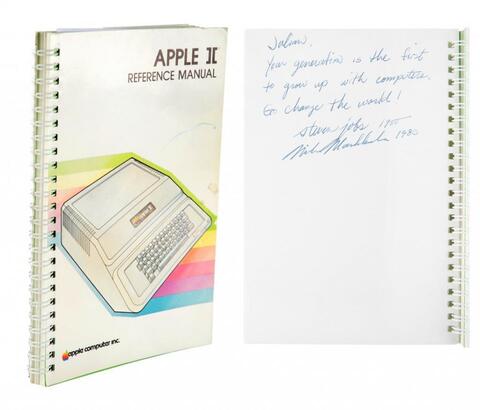 APPLE ][
REFERENCE MANUAL
apple computer inc.
Julian,
Your generation is the first
to grow up with computers.
Go change the world!
steven jobs 1980
Mike Markkula 1980